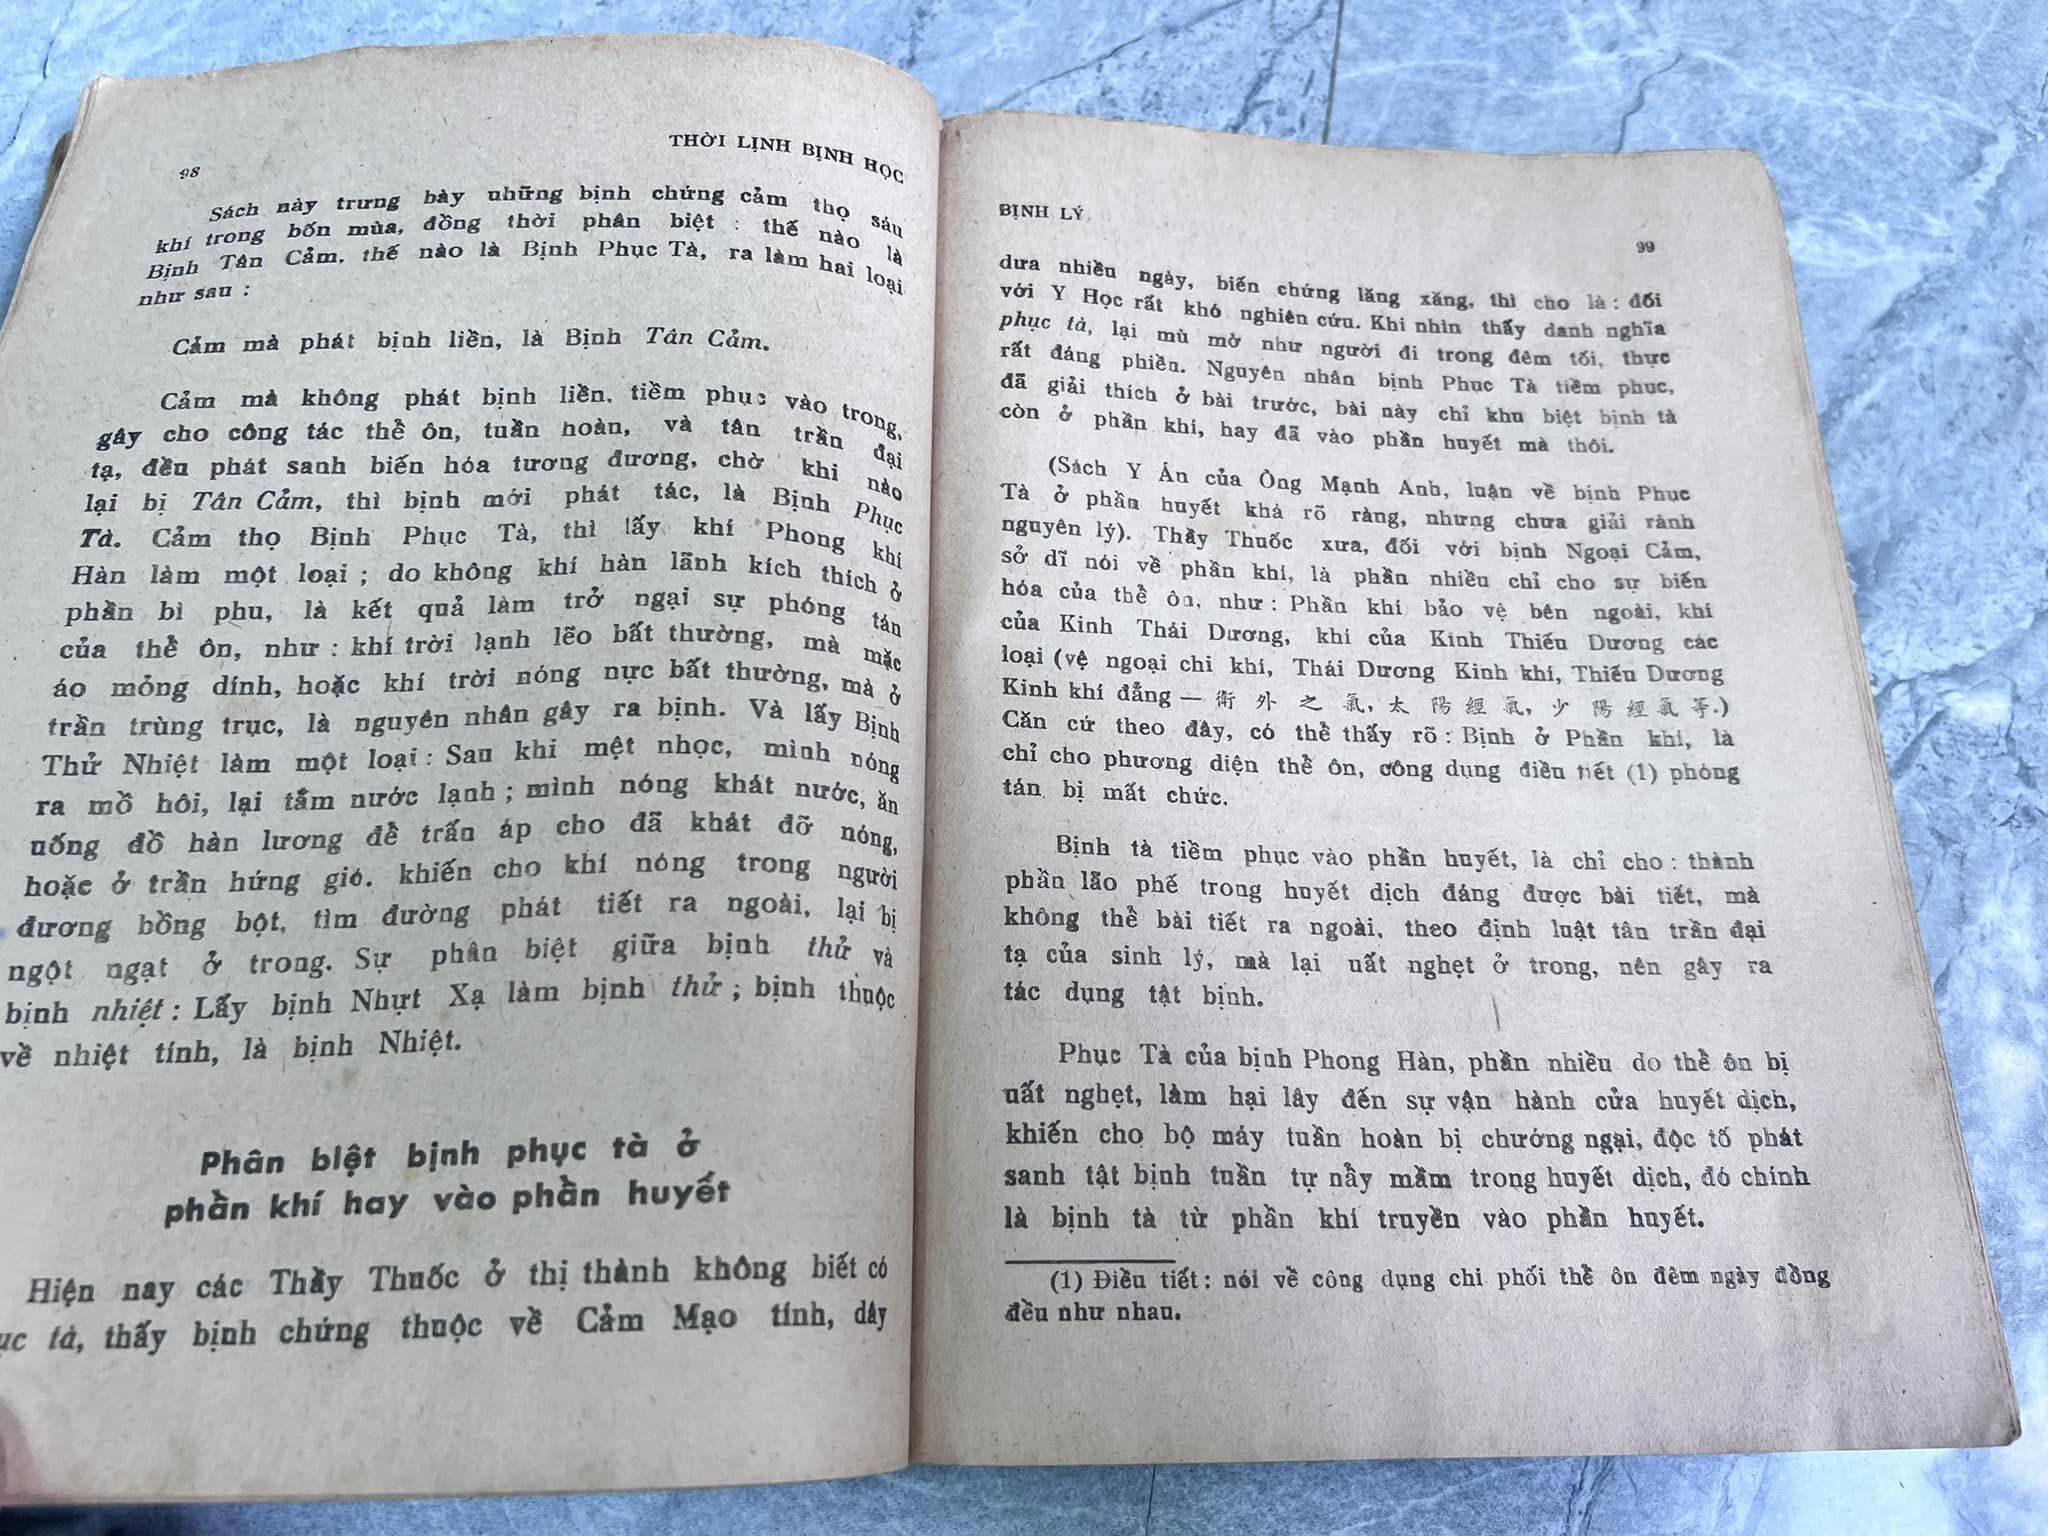 98
THỜI LỊNH BỊNH HỌC
Sách này trưng bày những bịnh chứng cảm thọ sáu
khí trong bốn mùa, đồng thời phân biệt : thế nào là
Bịnh Tân Cảm, thế nào là Bịnh Phục Tà, ra làm hai loại
như sau :
Cảm mà phát bịnh liền, là Bịnh Tân Cảm.
Cảm mà không phát bịnh liền. tiềm phục vào trong,
gây cho công tác thể ôn, tuần hoàn, và tân trần đại
tạ, đều phát sanh biến hóa tương đương, chờ khi nào
lại bị Tân Cảm, thì bịnh mới phát tác, là Bịnh Phục
Tà. Cảm thọ Bịnh Phục Tà, thì lấy khí Phong khí
Hàn làm một loại ; do không khí hàn lãnh kích thích ở
phần bì phu, là kết quả làm trở ngại sự phóng tán
của thể ôn, như : khí trời lạnh lẽo bất thường, mà mặc
áo mỏng dính, hoặc khí trời nóng nực bất thường, mà ở
trần trùng trục, là nguyên nhân gây ra bịnh. Và lấy Bịnh
Thử Nhiệt làm một loại : Sau khi mệt nhọc, mình nóng
ra mồ hôi, lại tắm nước lạnh ; mình nóng khát nước, ăn
uống đồ hàn lương để trấn áp cho đã khát đỡ nóng,
hoặc ở trần hứng gió. khiến cho khí nóng trong người
đương bồng bột, tìm đường phát tiết ra ngoài, lại bị
ngột ngạt ở trong. Sự phân biệt giữa bịnh thử và
bịnh nhiệt : Lấy bịnh Nhựt Xạ làm bịnh thử ; bịnh thuộc
về nhiệt tính, là bịnh Nhiệt.
Phân biệt bịnh phục tà ở
phần khí hay vào phần huyết
Hiện nay các Thầy Thuốc ở thị thành không biết có
tà, thấy bịnh chứng thuộc về Cảm Mạo tính, dây
BỊNH LÝ
99
dưa nhiều ngày, biến chứng lăng xăng, thì cho là : đối
với Y Học rất khó nghiên cứu. Khi nhìn thấy danh nghĩa
phục tà, lại mù mờ như người đi trong đêm tối, thực
rất đáng phiền. Nguyên nhân bịnh Phục Tà tiềm phục,
đã giải thích ở bài trước, bài này chỉ khu biệt bịnh tà
còn ở phần khí, hay đã vào phần huyết mà thôi.
(Sách Y Án của Ông Mạnh Anh, luận về bịnh Phục
Tà ở phần huyết khá rõ ràng, nhưng chưa giải rành
nguyên lý). Thầy Thuốc xưa, đối với bịnh Ngoại Cảm,
sở dĩ nói về phần khí, là phần nhiều chỉ cho sự biến
hóa của thể ôn, như : Phần khí bảo vệ bên ngoài, khí
của Kinh Thái Dương, khí của Kinh Thiếu Dương các
loại (vệ ngoại chi khí, Thái Dương Kinh khí, Thiếu Dương
Kinh khí đẳng — 衛 外 之 氣, 太 陽 經 氣, 少 陽 經 氣 等.)
Căn cứ theo đây, có thể thấy rõ : Bịnh ở Phần khí, là
chỉ cho phương diện thể ôn, công dụng điều tiết (1) phóng
tán bị mất chức.
Bịnh tà tiềm phục vào phần huyết, là chỉ cho : thành
phần lão phế trong huyết dịch đáng được bài tiết, mà
không thể bài tiết ra ngoài, theo định luật tân trần đại
tạ của sinh lý, mà lại uất nghẹt ở trong, nên gây ra
tác dụng tật bịnh.
Phục Tà của bịnh Phong Hàn, phần nhiều do thể ôn bị
uất nghẹt, làm hại lây đến sự vận hành cửa huyết dịch,
khiến cho bộ máy tuần hoàn bị chướng ngại, độc tố phát
sanh tật bịnh tuần tự nẩy mầm trong huyết dịch, đó chính
là bịnh tà từ phần khí truyền vào phần huyết.
(1) Điều tiết : nói về công dụng chi phối thể ôn đêm ngày đồng
đều như nhau.